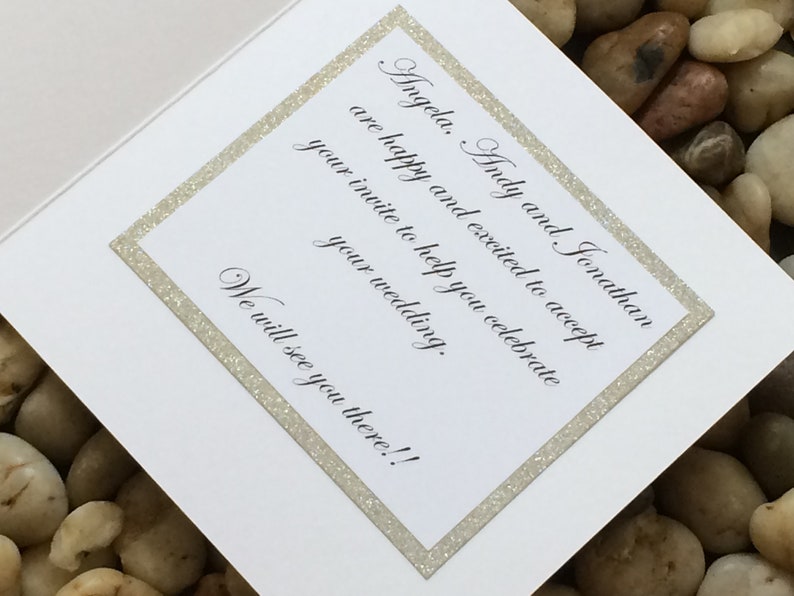 Angela, Andy and Jonathan
are happy and excited to accept
your invite to help you celebrate
your wedding.
We will see you there!!